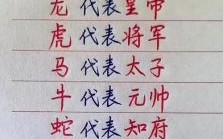 龙代表皇帝
虎代表将军
马代表太子
牛代表元帅
蛇代表知府